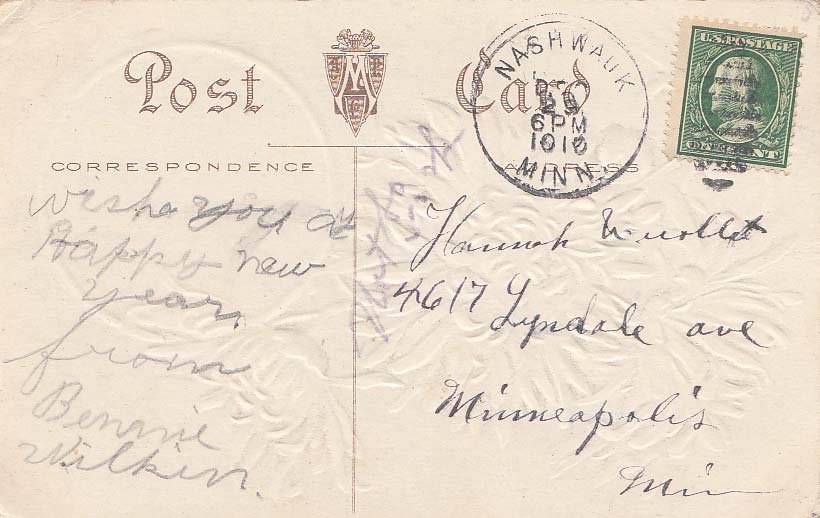 Post Card
CORRESPONDENCE
ADDRESS
NASHWAUK
DEC
6 PM
1910
MINN.
U.S. POSTAGE
wishe you a
Happy new
year,
from
Bennie
Wilkin.
Hannah
4617 Lyndale ave
Minneapolis
Min